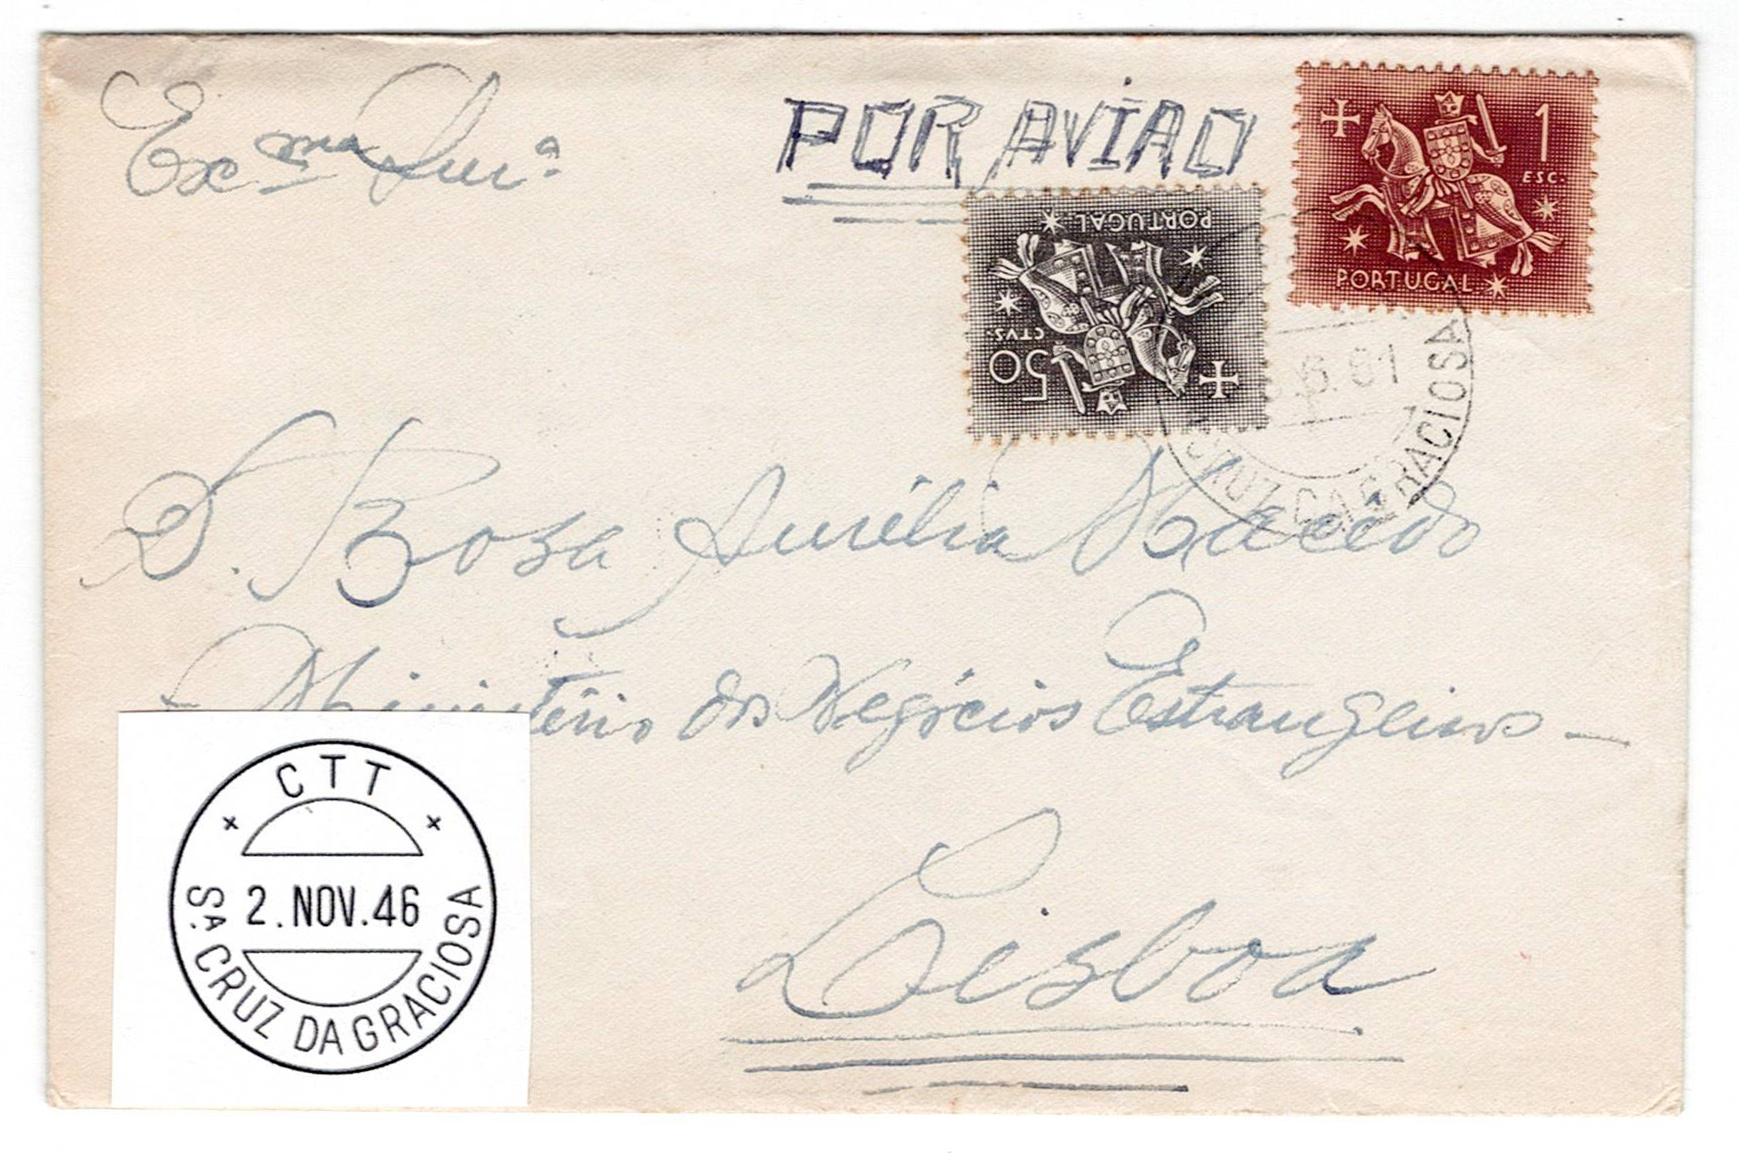 Ex.ma Snr.a
POR AVIÃO
1
ESC.
PORTUGAL
PORTUGAL
50
CTVS.
6.61
CRUZ DA GRACIOSA
D. Rosa Aurélia Macedo
Ministério dos Negócios Estrangeiros —
Lisboa
CTT
2. NOV. 46
Sᴬ. CRUZ DA GRACIOSA